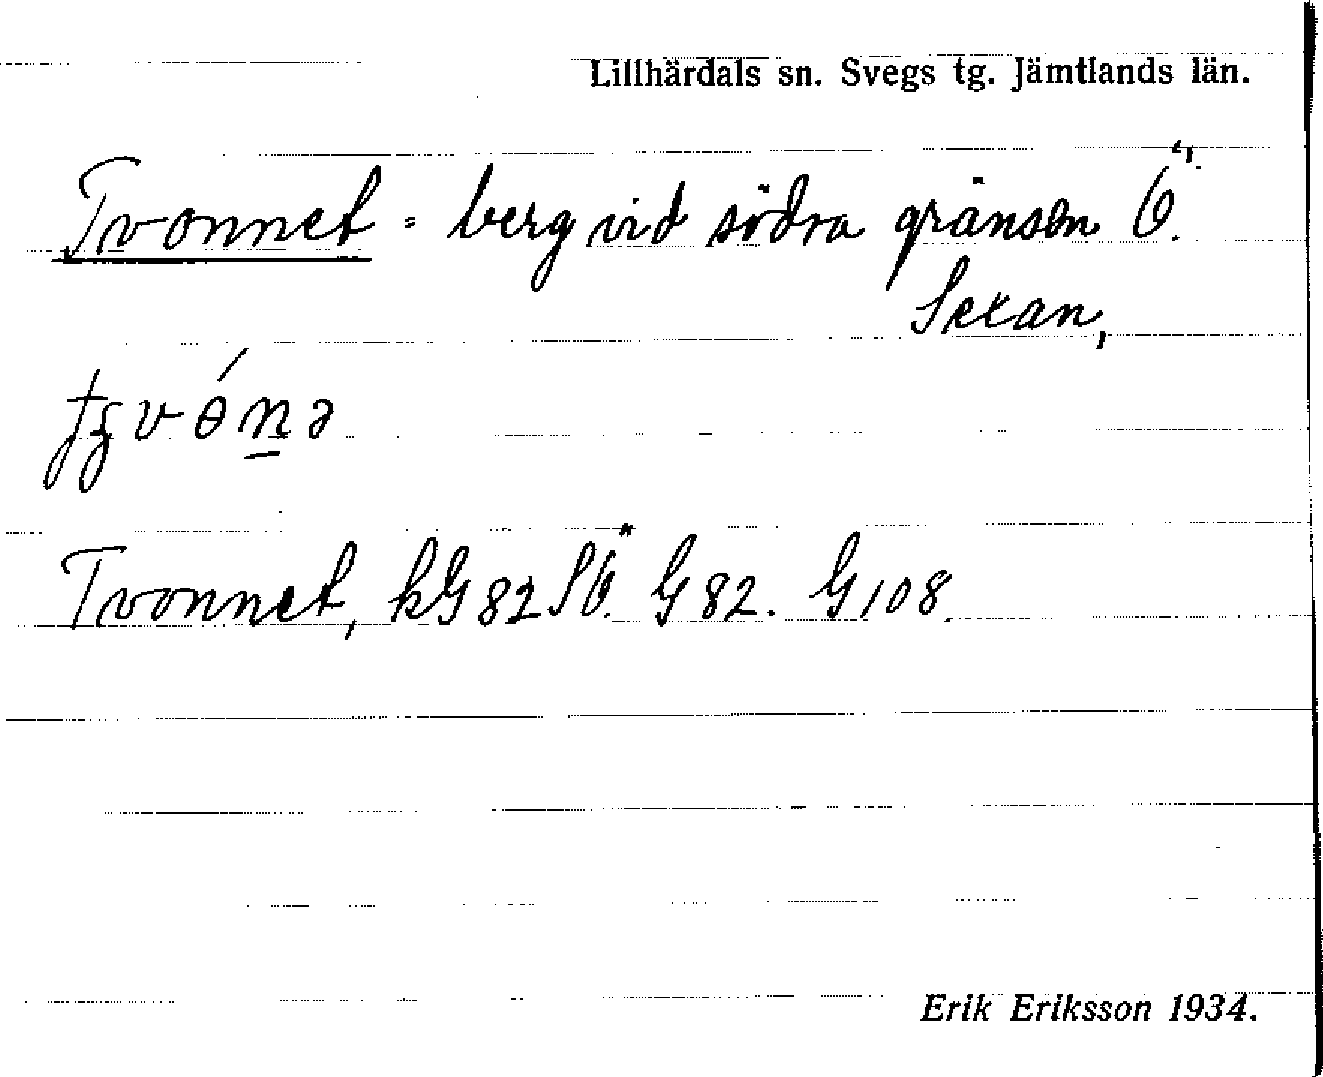 Lillhärdals sn. Svegs tg. Jämtlands län.
Tvonnet = berg vid södra gränsen Ö.
Sexan,
Tvonnet, kG 82 SÖ. G 82. G 108.
Erik Eriksson 1934.